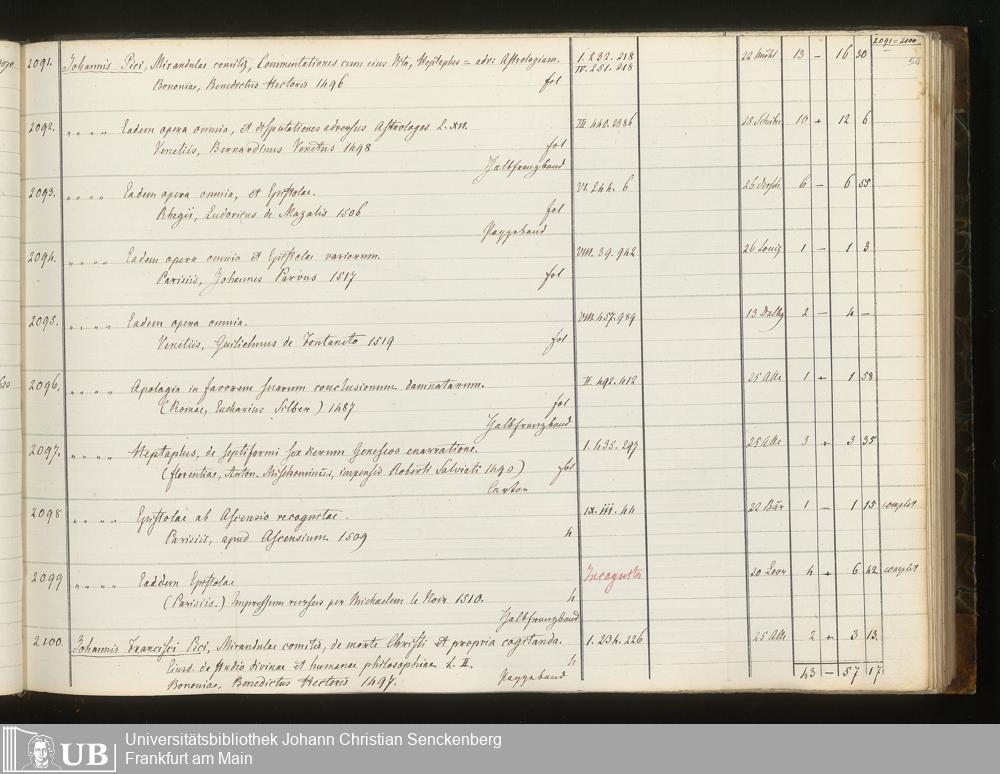 2091 = 2100
50
2091. Johannis Pici, Mirandulae comitis, Commentationes cum eius Vita, Heptaplus = adv. Astrologiam. I. 232. 218 22 Mühl 13 — 16 30
Bononiae, Benedictus Hectoris 1496 fol IV. 251. 218
2092. " " " " Eadem opera omnia, et disputationes adversus Astrologos L. XII. III. 440. 2386 10 + 12 6
Venetiis, Bernardinus Venetus 1498 fol
Halbfranzband
2093. " " " " Eadem opera omnia, et Epistolae. VI. 244. 6 6 — 6 55
Rhegii, Ludovicus de Mazalis 1506 fol
Pappeband
2094. " " " " Eadem opera omnia et Epistolae variorum. VIII. 39. 942 1 — 1 3
Parisiis, Johannes Parvus 1517 fol
2095. " " " " Eadem opera omnia. VIII. 457. 989 2 — 4 —
Venetiis, Guilielmus de Fontaneto 1519 fol
2096. " " " " Apologia in favorem suarum conclusionum damnatarum. II. 492. 412 25 Alle 1 + 1 58
(Romae, Eucharius Silber) 1487 fol
Halbfranzband
2097. " " " " Heptaplus, de septiformi sex dierum Geneseos enarratione. I. 435. 297 25 Alle 3 + 3 35
(florentiae, Anton. Mischominus, impensis Roberti Salviati 1490) fol
Carton
2098 " " " " Epistolae ab Ascensio recognitae. IX. III. 44 22 Bär 1 — 1 15 complet
Parisiis, apud Ascensium 1509 4
2099 " " " " Eaedem Epistolae Incognita 4 + 6 42 complet
(Parisiis.) Impressum rursus per Michaelem le Noir 1510. 4
Halbfranzband
2100. Johannis Francisci Pici, Mirandulae comitis, de morte Christi et propria cogitanda. I. 234. 226 25 Alle 2 + 3 13.
Eiusd. de studio divinae et humanae philosophiae L. II. 4
Bononiae, Benedictus Hectoris 1497. Pappeband 43 — 57 17
UB
Universitätsbibliothek Johann Christian Senckenberg
Frankfurt am Main